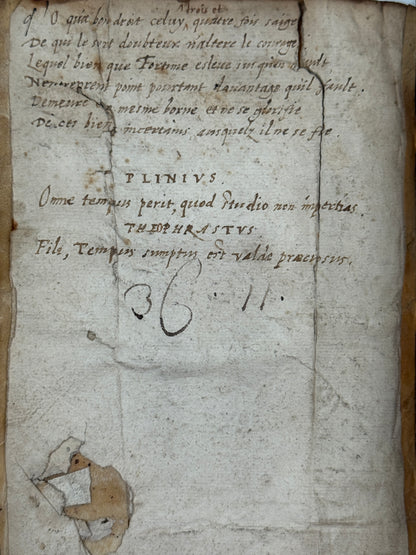 trois et
q. O qu'a bon droit celuy, quatre fois saige
De qui le sort doubteux n'altere le courage
Lequel bien que Fortune esleve jusqu'en hault
N'en reprent point pourtant davantage qu'il fault.
Demeure en mesme borne et ne se glorifie
De ces biens incertains ausquelz il ne se fie.
PLINIVS.
Omne tempus perit, quod studio non impertias.
THEOPHRASTVS
Fili, Tempus sumptus est valde praeciosus.
36 · 11.